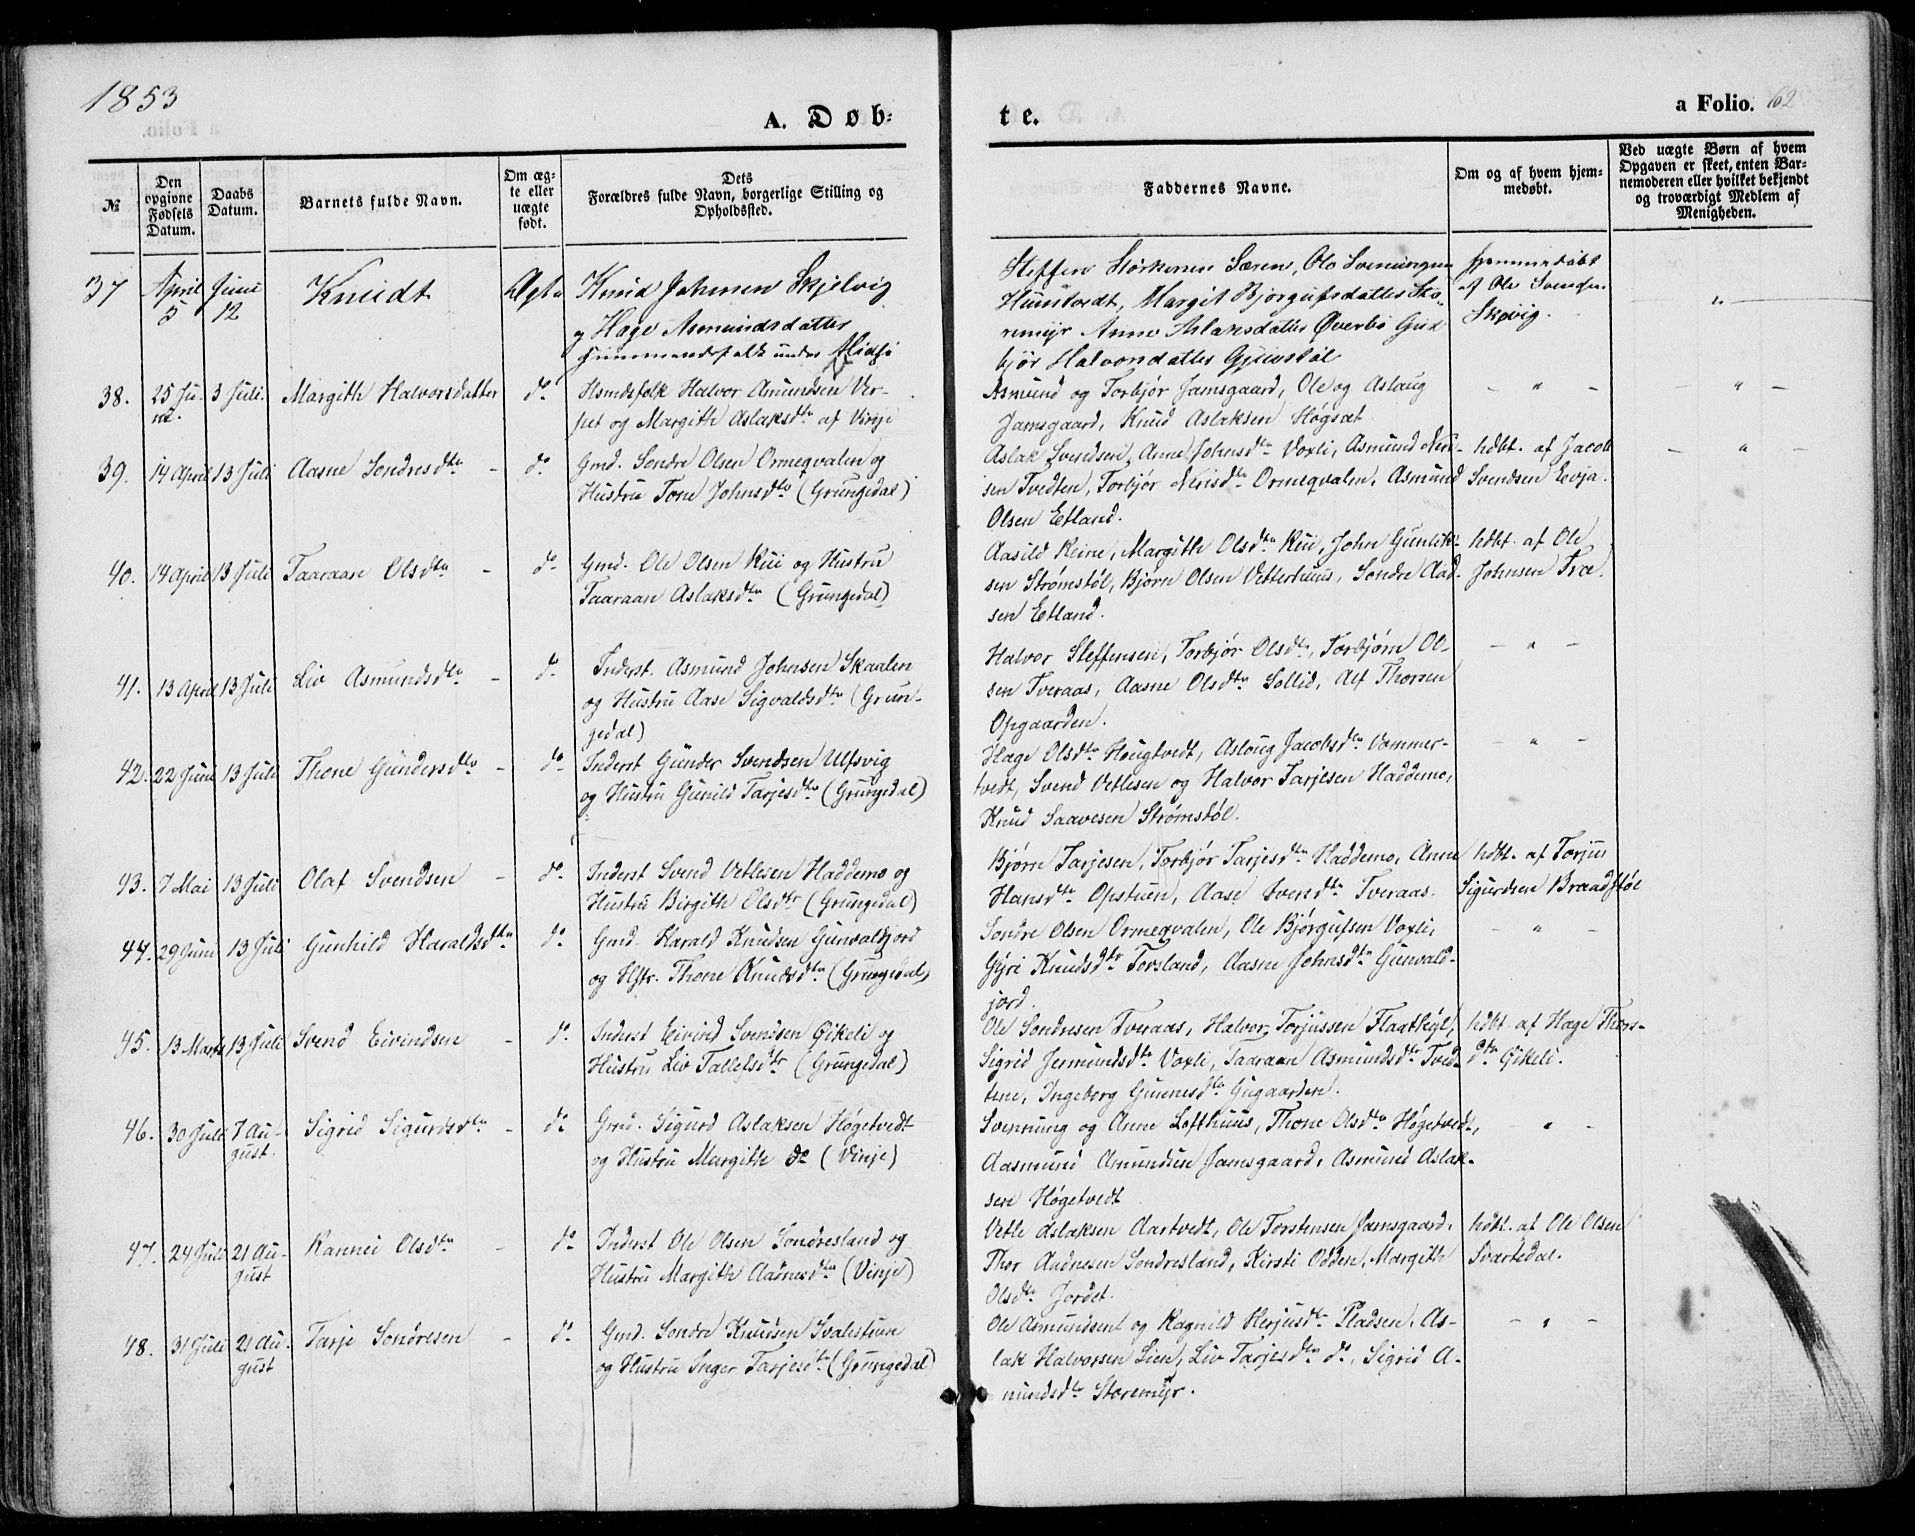 1853
A. Døb=
te.
a Folio. 62
№
Den opgivne Fødsels Datum.
Daabs Datum.
Barnets fulde Navn.
Om ægte eller uægte født.
Dets Forældres fulde Navn, borgerlige Stilling og Opholdssted.
Faddernes Navne.
Om og af hvem hjemmedøbt.
Ved uægte Børn af hvem Opgaven er skeet, enten Barnemoderen eller hvilket bekjendt og troværdigt Medlem af Menigheden.
37 April 5 Juni 12 Knudt Ægte Knud Johnsen Skjelvig
og Hage Asmundsdatter
huusmandsfolk under
Steffen Størkersen Særen, Ole Sveningsen
Humtvedt, Margit Bjørgufsdatter Sto-
remyr Anne Aslaksdatter Øverbø Gu
bjør Halvorsdatter
hjemmedøbt
af Ole Svendsen
Skjevig. "
38. 25 Ju-
ni. 3 Juli. Margith Halvorsdatter do Hsmdsfolk Halvor Amundsen Ver-
pet og Margith Aslaksdtr af Vinje
Asmund og Torbjør Jamsgaard, Ole og Aslaug
Jamsgaard, Knud Aslaksen Høgsæt
- " - - " -
39. 14 April 13 Juli Aasne Sondresdtr - do Gmd. Sondre Olsen Ormeqvalen og
Hustru Tone Johnsdtr (Grungedal)
Aslak Svendsen, Anne Johnsdtr Voxli, Asmund Neri-
sen Tvedten, Torbjør Nerisdtr Ormeqvalen, Asmund
Olsen Etland.
hdbt. af Jacob
Svendsen Evja. - " -
40. 14 April 13 Juli Taaraan Olsdtr - do Gmd. Ole Olsen Kui og Hustru
Taaraan Aslaksdtr (Grungedal)
Aasild Reine, Margith Olsdtr Kui, John Gunlik-
sen Strømstøl, Bjørn Olsen Vetterhuus, Sondre Aad-
sen Etland.
hdbt. af Ole
Johnsen Træ.
41. 13 April 13 Juli Liv Asmundsdtr - do Inderst. Asmund Johnsen Skaalen
og Hustru Aase Sigvaldsdtr (Grun-
gedal)
Halvor Steffensen, Torbjør Olsdtr, Torbjørn Ol-
sen Tveraas, Aasne Olsdtr Sollid, Alf Thorsen
Opgaarden.
- " -
42. 22 Juni 13 Juli Thone Gundersdtr - do Inderst Gunder Svendsen Ulfsvig
og Hustru Gunild Tarjesdtr (Grungedal)
Hage Olsdtr Hougtvedt, Aslaug Jacobsdtr Vommer-
tvedt, Svend Vetlesen og Halvor Tarjesen Haddemo,
Knud Saavesen Strømstøl.
- " -
43. 7 Mai 13 Juli Olaf Svendsen - do Inderst Svend Vetlesen Haddemo og
Hustru Birgith Olsdtr (Grungedal)
Bjørn Tarjesen, Torbjør Tarjesdtr Haddemo, Anne
Hansdtr Opstuen, Aase Svendtr Tveraas.
hdbt. af Torjus
Sigurdsen Braadstøl
44. 29 Juni 13 Juli Gunhild Haraldsdtr do Gmd. Harald Knudsen Gunvaldjord
og Hstr. Thone Knudsdtr (Grungedal)
Sondre Olsen Ormeqvalen, Ole Bjørgufsen Voxli,
Gyri Knudsdtr Torsland, Aasne Johnsdtr Gunvald-
jord.
- " -
45. 13 Marts 13 Juli Svend Eivindsen - do Inderst Eivind Svendsen Gikeli og
Hustru Liv Tallefsdtr (Grungedal)
Ole Sondresen Tveraas, Halvor Torjussen Flaathyl,
Sigrid Jermundsdtr Voxli, Taaraan Asmundsdtr Tved-
tene, Ingeborg Gunnesdtr Gugaarden.
hdbt. af Hage Thors-
dtr Gikeli.
46. 30 Juli 7 Au-
gust. Sigrid Sigurdsdtr - do Gmd. Sigurd Aslaksen Høgetvedt
og Hustru Margith do (Vinje)
Svennung og Anne Lofthuus, Thone Olsdtr Høgetvedt,
Aasmund Amundsen Jamsgaard, Asmund Aslak-
sen Høgetvedt
- " -
47. 24 Juli 21 Au-
gust Rannei Olsdtr - do Inderst Ole Olsen Sondresland og
Hustru Margith Aadnesdtr (Vinje)
Vetle Aslaksen Aartvedt, Ole Torstensen Jamsgaard,
Thor Aadnesen Sondresland, Kirsti Odden, Margith
Olsdtr Jordet.
hdbt. af Ole Olsen
Svartedal.
48. 31 Juli 21 Au-
gust Tarje Sondresen - do Gmd. Sondre Knudsen Svalestuen
og Hustru Inger Tarjesdtr (Grungedal)
Ole Asmundsen og Ragnild Herjusdtr Pladsen, As-
lak Halvorsen Lien, Liv Tarjesdtr do, Sigrid A-
mundsdtr Storemyr.
- " -